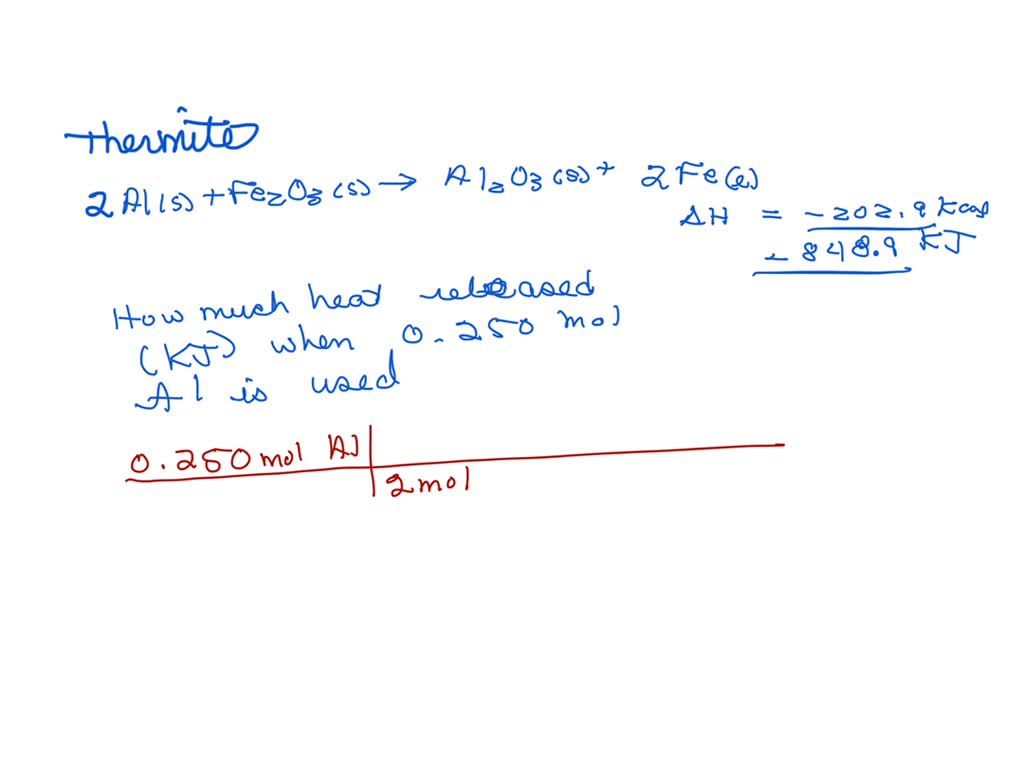 Thermite
2Al(s) + Fe2O3(s) → Al2O3(s) + 2Fe(l)
ΔH = -202.9 Kcal
-848.9 KJ
How much heat released
(KJ) when 0.250 mol
Al is used
0.250 mol Al
2 mol